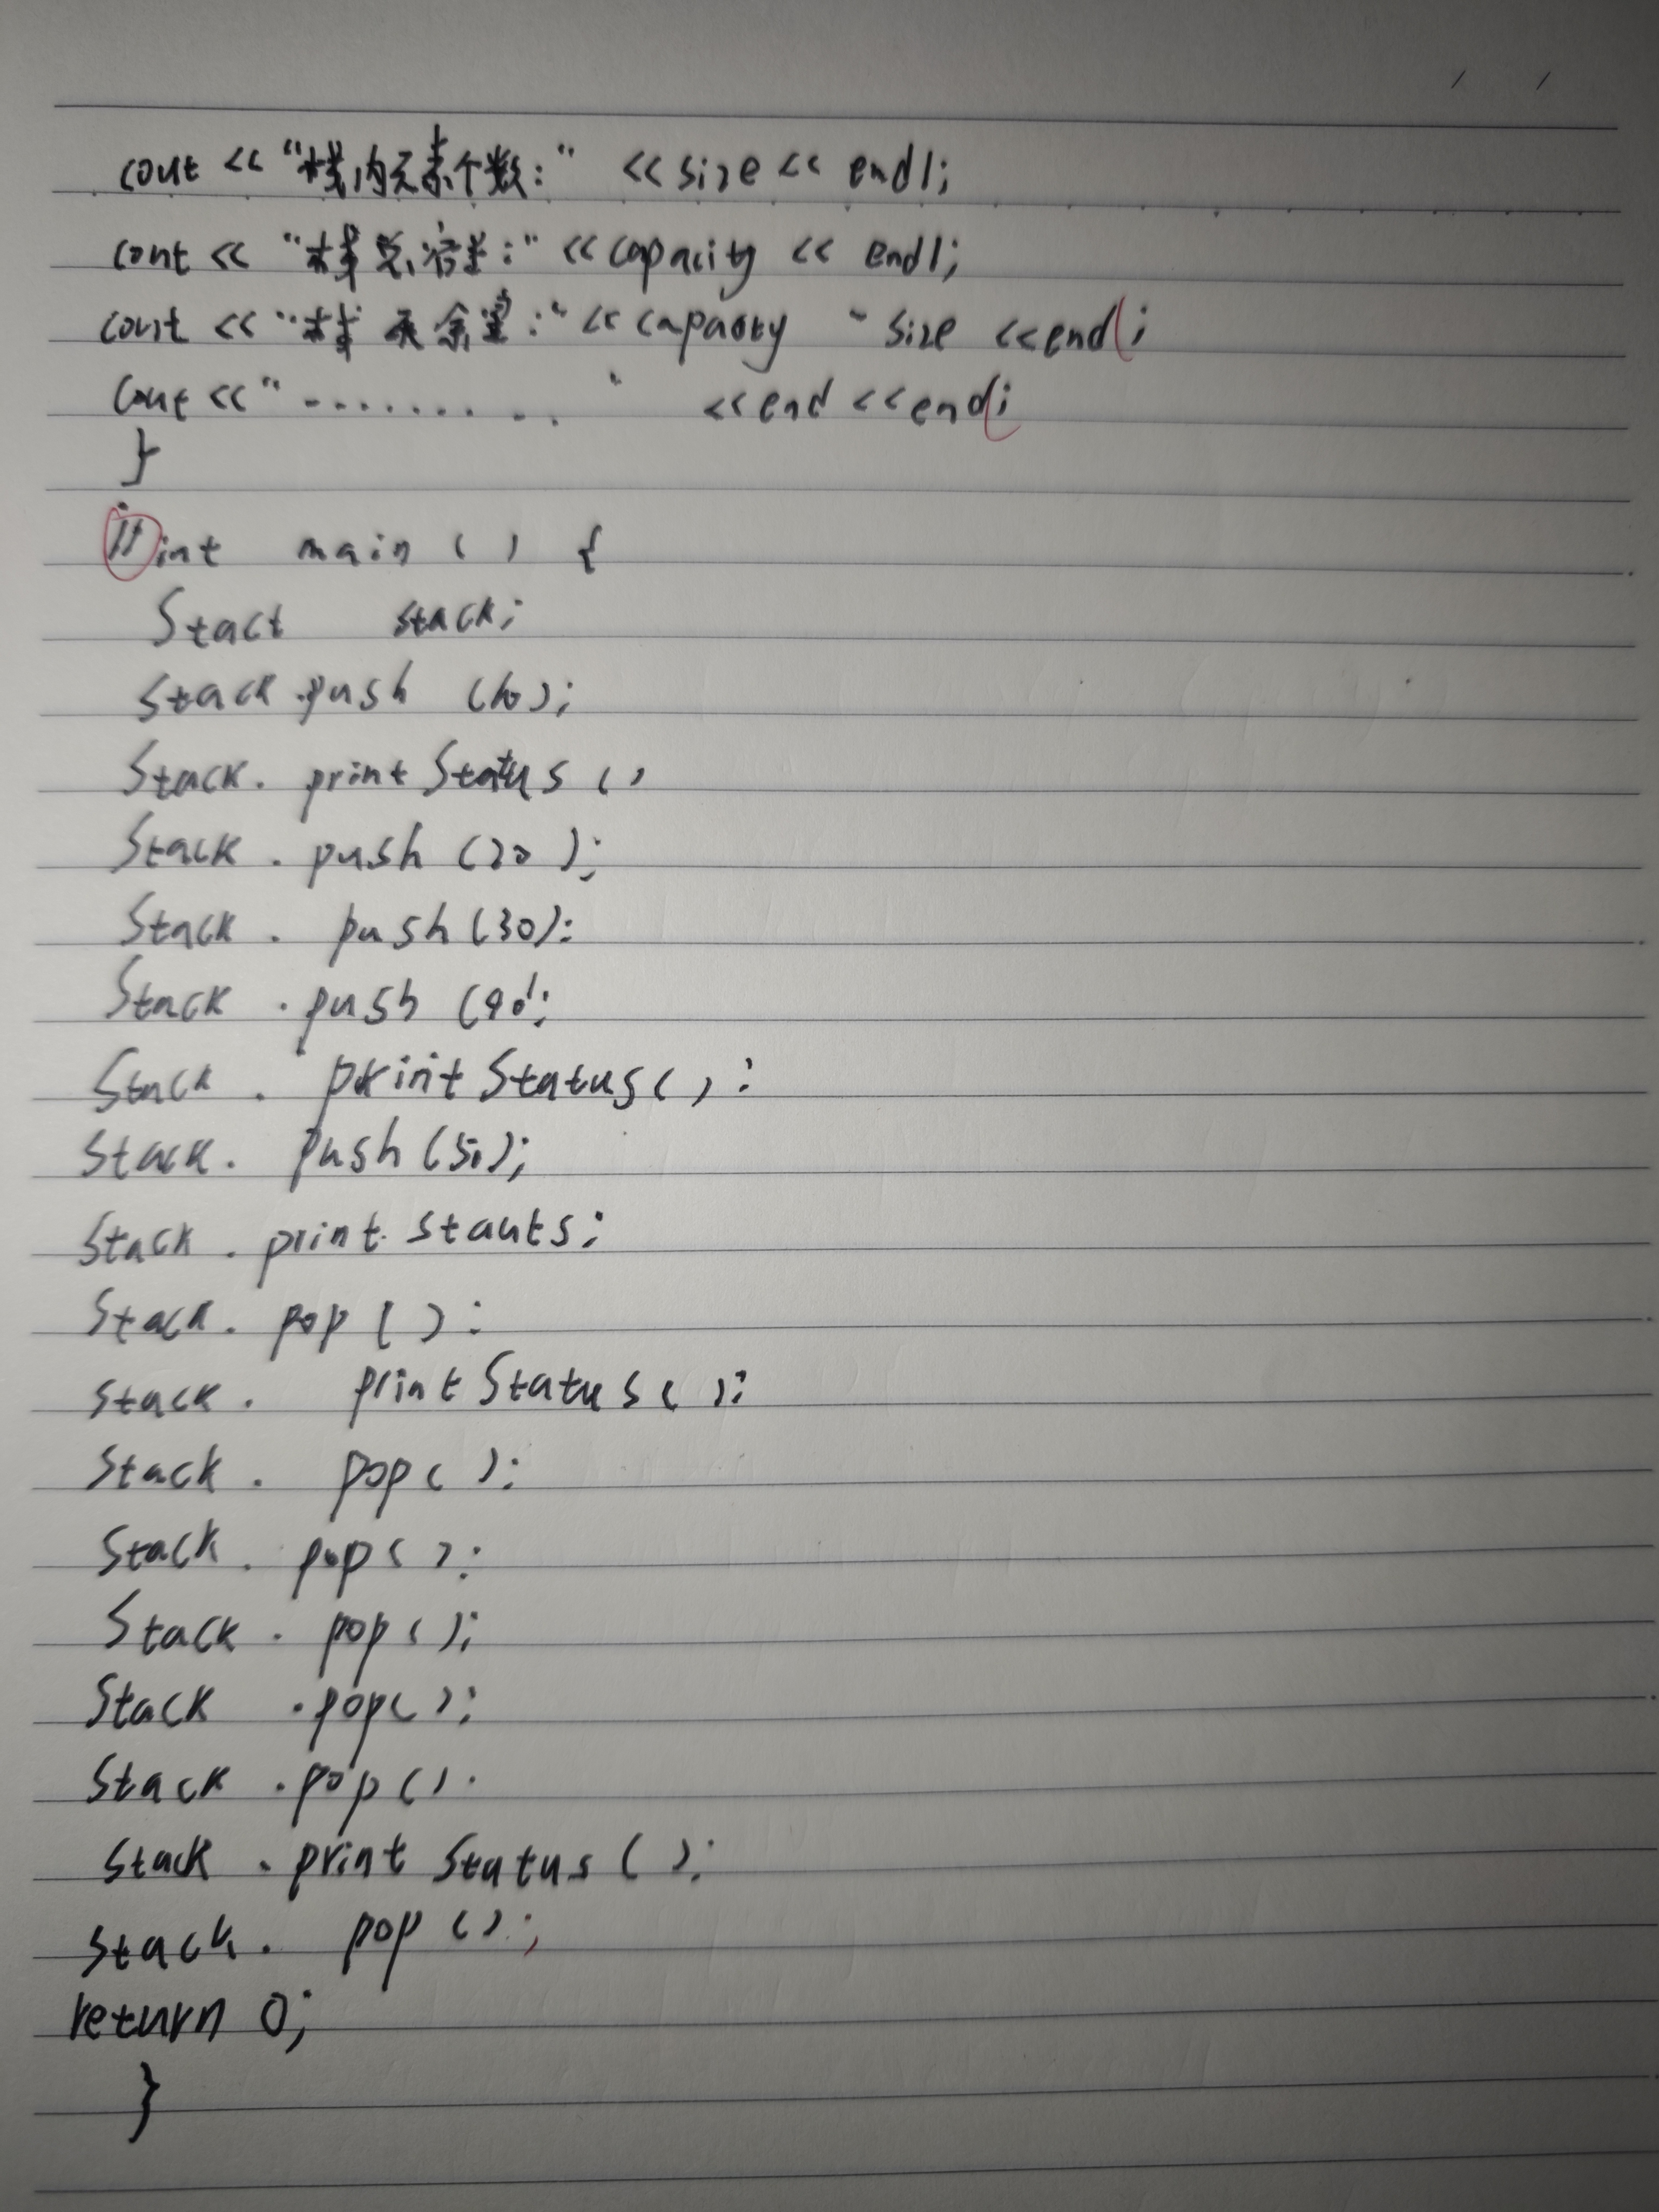 cout << "栈内元素个数:" << size << endl;
cout << "栈总容量:" << capacity << endl;
cout << "栈 余量:" << capacity - size << endl;
cout << "- - - - - - - - - -" << end << endl;
}
int main ( ) {
Stact stack;
Stack .push (10);
Stack. print Status ( )
Stack . push (20 );
Stack . push (30):
Stack . push (40);
Stack . print Status ( ) :
Stack. push (50);
Stack . print stauts;
Stack. pop ( ) :
Stack . print Status ( ):
Stack . pop ( ):
Stack . pop ( ):
Stack . pop ( );
Stack .pop( );
Stack .pop ( ).
Stack . print Status ( );
Stack . pop ( );
return 0;
}